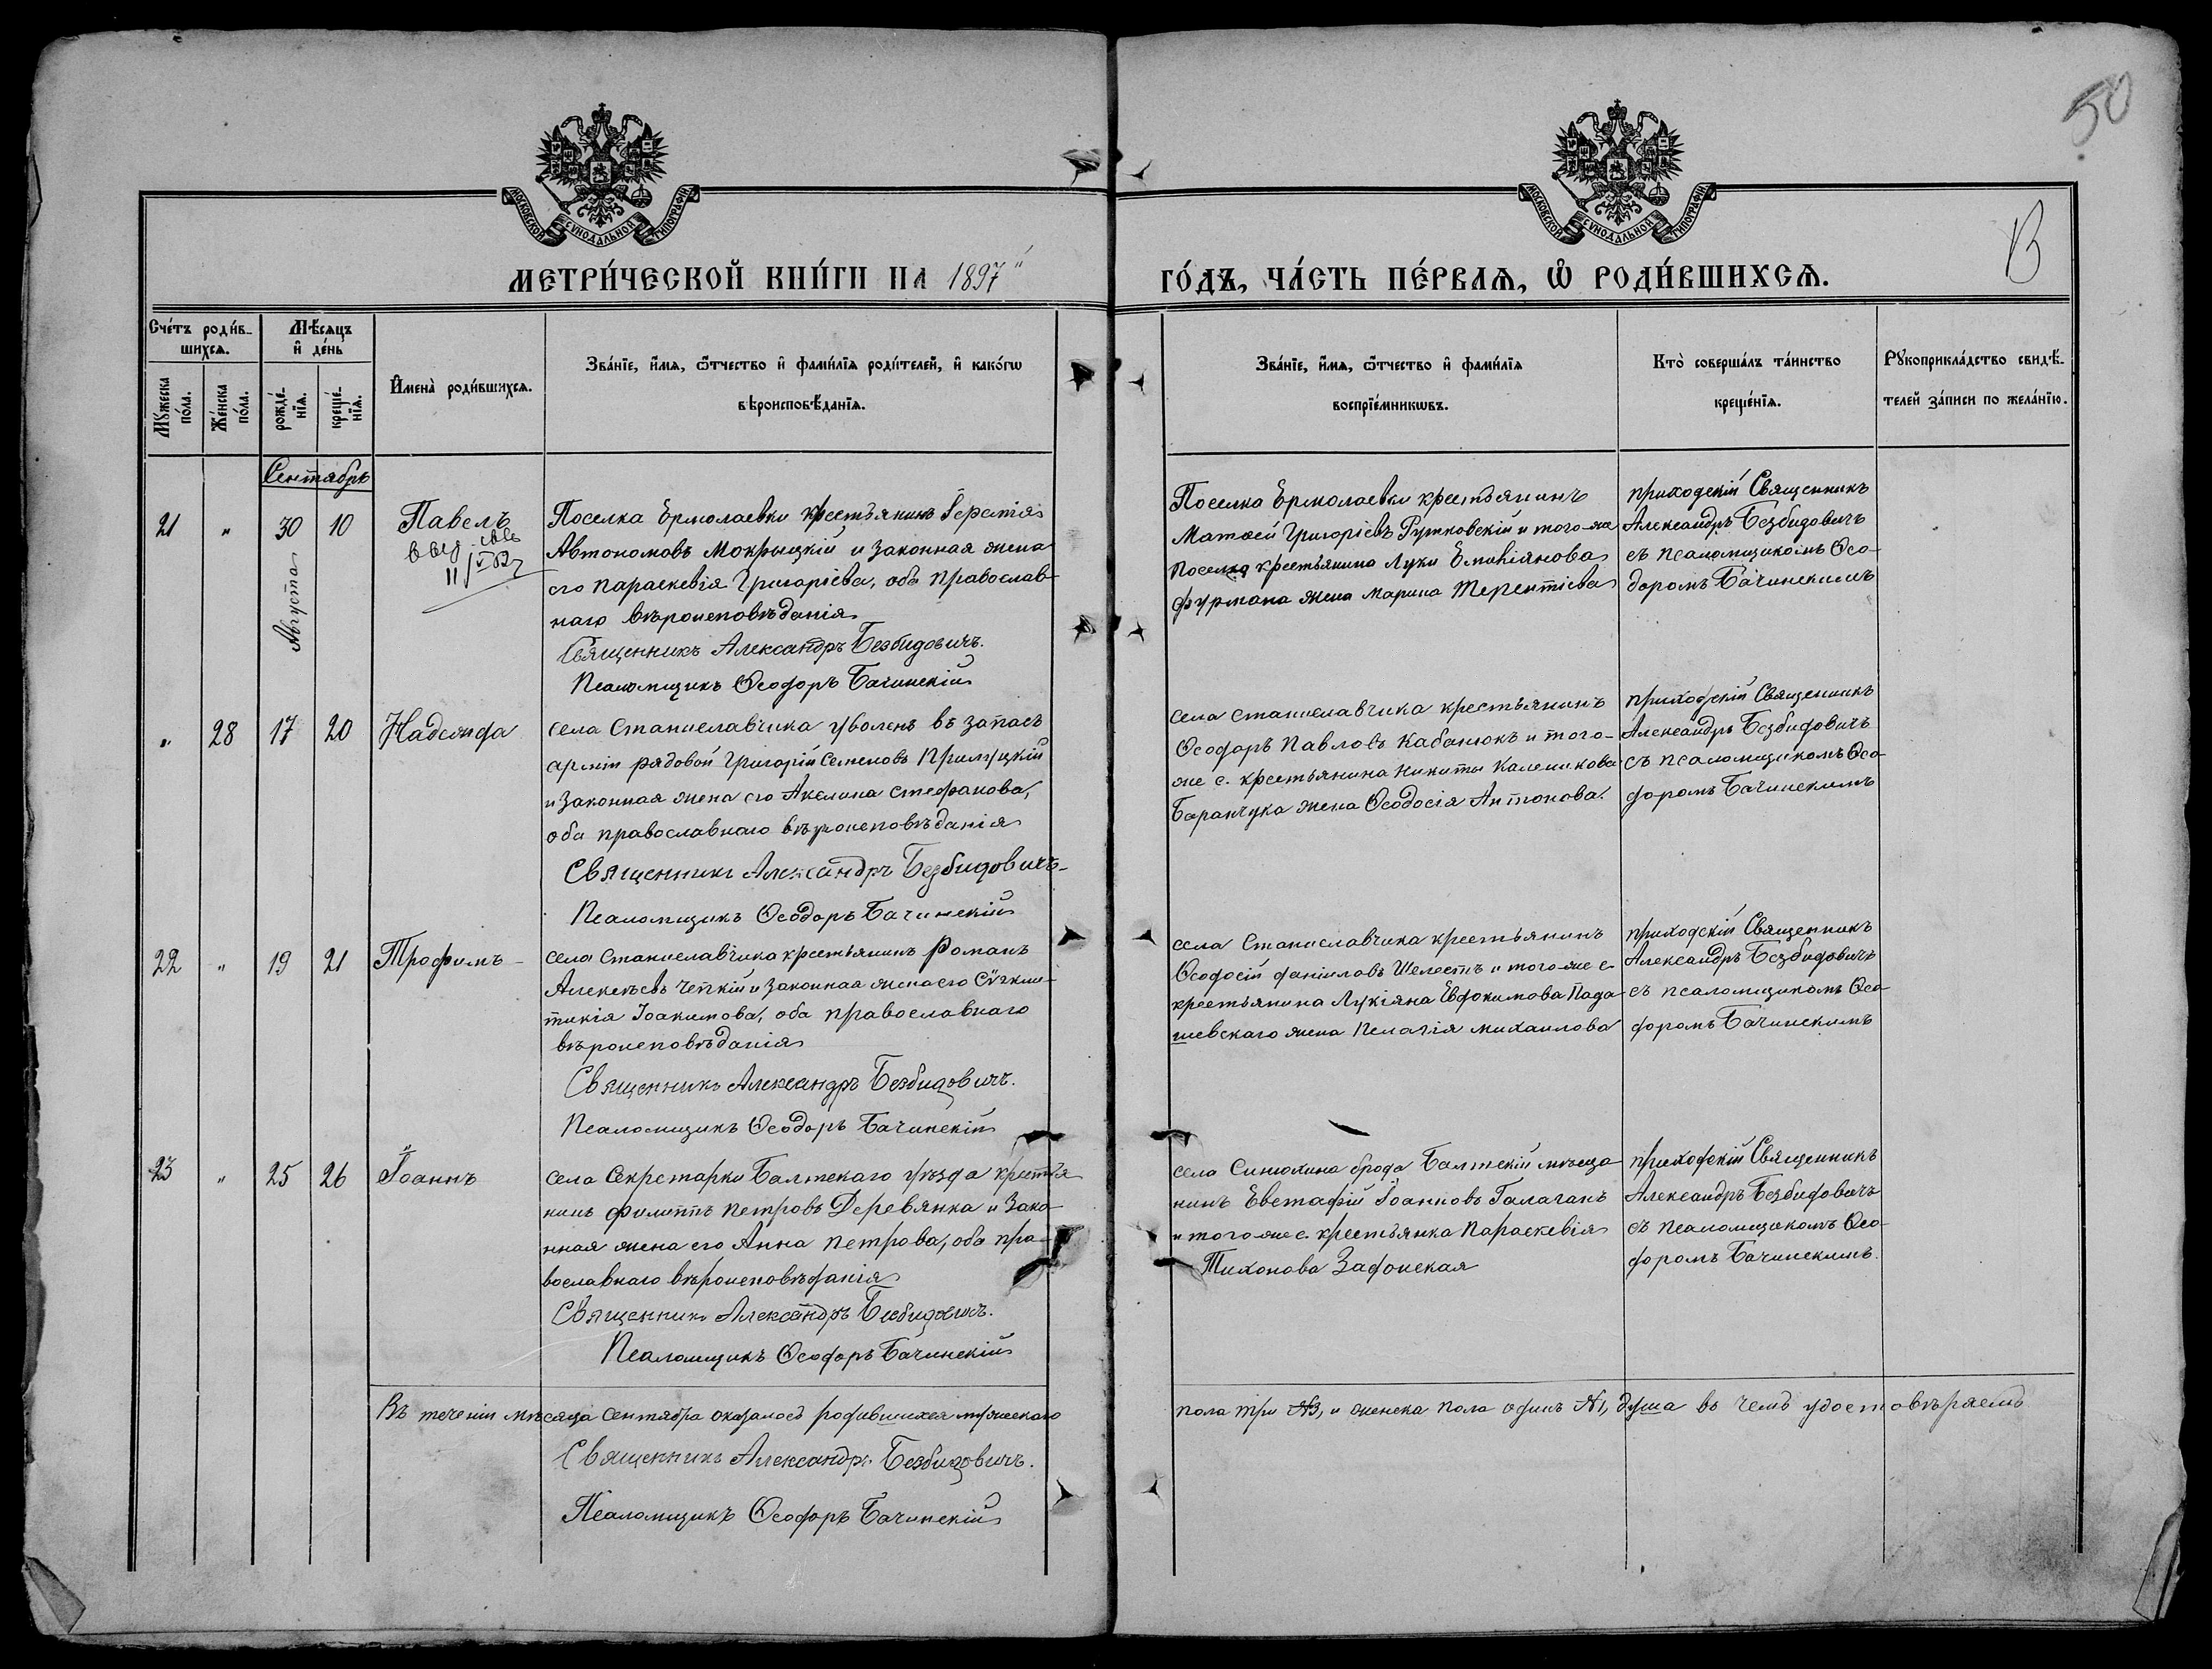 50
В
МОСКОВСКОЙ СУНОДАЛЬНОЙ ТИПОГРАФІИ
МОСКОВСКОЙ СУНОДАЛЬНОЙ ТИПОГРАФІИ
МЕТРИ́ЧЕСКОЙ КНИ́ГИ НА 1897
ГО́ДЪ, ЧА́СТЬ ПЕ́РВАЯ, Ѡ РОДИ́ВШИХСЯ.
Сче́тъ роди́в-
шихся.
Мѣ́сяцъ
и де́нь
Му́жеска
по́ла.
Же́нска
по́ла.
рожде́-
нїя.
креще́-
нїя.
Имена̀ роди́вшихся.
Зва́нїе, и́мя, ѻ́тчество и фами́лїя роди́телей, и како́гѡ
вѣроисповѣ́данїя.
Зва́нїе, и́мя, ѻ́тчество и фами́лїя
воспрїе́мникѡвъ.
Кто̀ соверша́лъ та́инство
креще́нїя.
Рукоприкла́дство свидѣ́-
телей за́писи по жела́нїю.
Сентябрь
21 " 30 10
Августа
Павелъ
Поселка Ермолаевки крестьянинъ
Автономовъ Мокрыцкій и законная жена
его Параскевія Григоріева, оба православ-
наго вѣроисповѣданія
Священникъ Александръ Безбидовичъ.
Псаломщикъ Ѳеодоръ Бачинскій
Поселка Ермолаевки крестьянинъ
Матѳей Григоріевъ Рутковскій и того-же
поселка крестьянина Луки Емиліянова
фурмана жена Марина Терентіева
приходскій Священникъ
Александръ Безбидовичъ
съ псаломщикомъ Ѳео-
доромъ Бачинскимъ
" 28 17 20 Надежда
села Станиславчика уволенъ въ запасъ
арміи рядовой Григорій Семеновъ Прилуцкій
и законная жена его Акелина Стефанова,
оба православнаго вѣроисповѣданія
Священникъ Александръ Безбидовичъ
Псаломщикъ Ѳеодоръ Бачинскій
села Станиславчика крестьянинъ
Ѳеодоръ Павловъ Кабанюкъ и того-
же с. крестьянина Никиты Каленикова
Баранчука жена Ѳеодосія Антонова.
приходскій Священникъ
Александръ Безбидовичъ
съ псаломщикомъ Ѳео-
доромъ Бачинскимъ
22 " 19 21 Трофимъ
села Станиславчика крестьянинъ Романъ
Алексѣевъ и законная жена его Сѵнкли-
тикія Іоакимова, оба православнаго
вѣроисповѣданія
Священникъ Александръ Безбидовичъ.
Псаломщикъ Ѳеодоръ Бачинскій
села Станиславчика крестьянинъ
Ѳеодосій Даніиловъ Шелестъ и того-же с.
крестьянина Лукіяна Евдокимова Пада-
шевскаго жена Пелагія Михаилова
приходскій Священникъ
Александръ Безбидовичъ
съ псаломщикомъ Ѳео-
доромъ Бачинскимъ
23 " 25 26 Іоаннъ
села Секретарки Балтскаго уѣзда крестья
нинъ Филиппъ Петровъ Деревянка и зако-
нная жена его Анна Петрова, оба пра-
вославнаго вѣроисповѣданія
Священникъ Александръ Безбидовичъ.
Псаломщикъ Ѳеодоръ Бачинскій
села Синюхина брода Балтскій мѣща
нинъ Евстафій Іоанновъ Галаганъ
и того-же с. крестьянка Параскевія
Тихонова Задонская
приходскій Священникъ
Александръ Безбидовичъ
съ псаломщикомъ Ѳео-
доромъ Бачинскимъ.
Въ теченіи мѣсяца Сентября оказалось родившихся мужескаго
пола три №3, и женска пола одинъ №1, душа въ чемъ удостовѣряемъ
Священникъ Александръ Безбидовичъ.
Псаломщикъ Ѳеодоръ Бачинскій